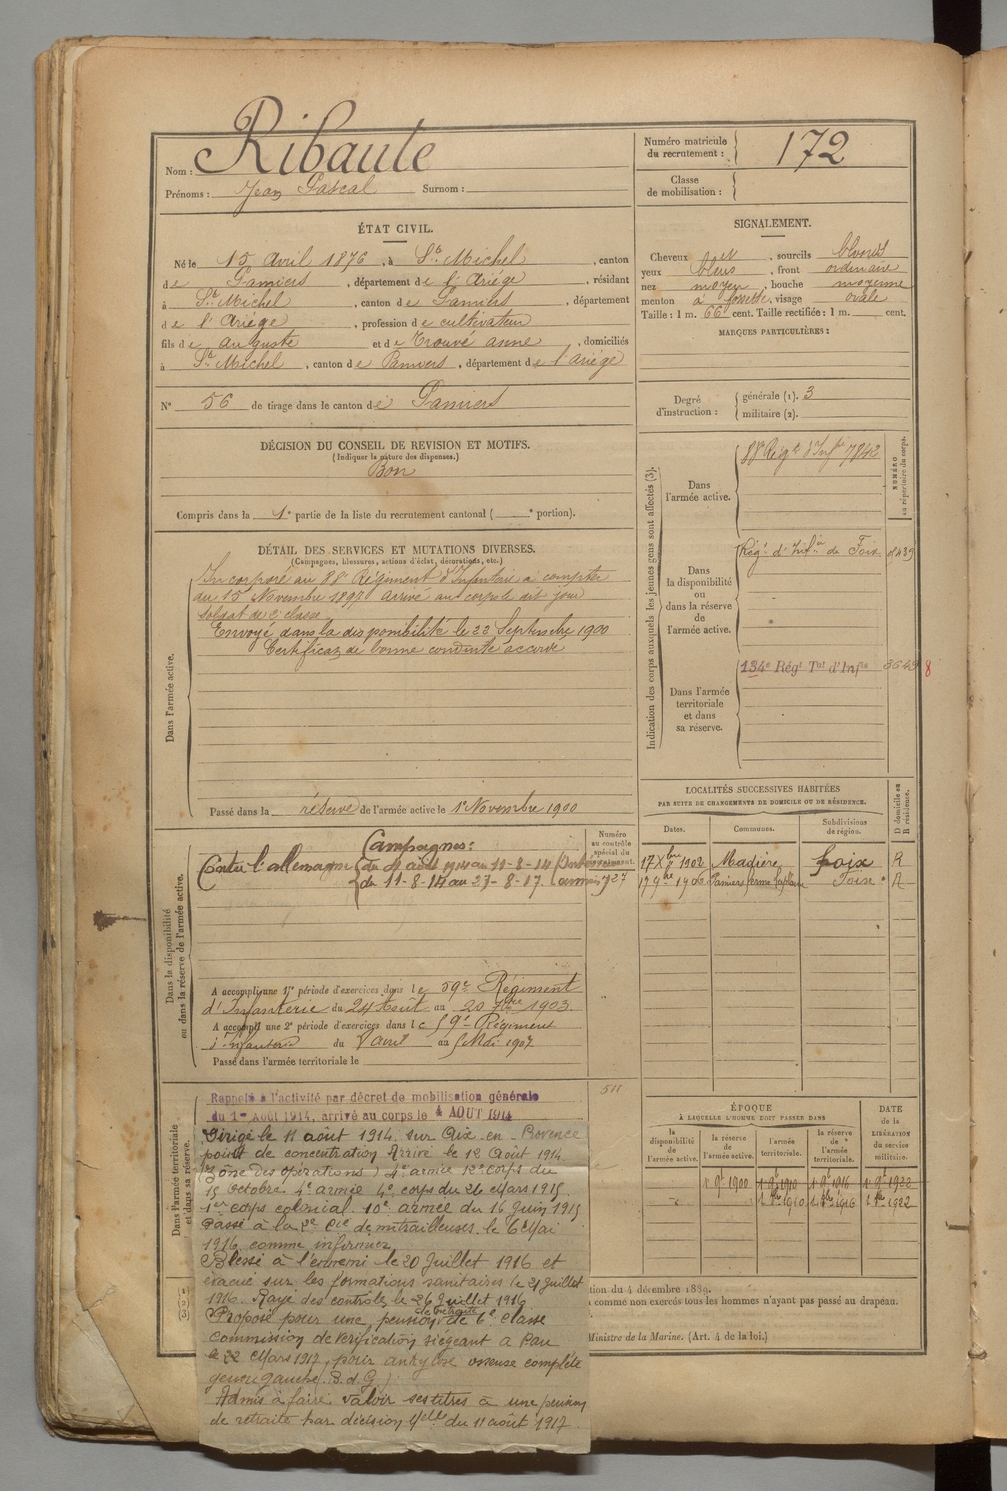 Nom : Ribaute
Prénoms : Jean Pascal Surnom :
Numéro matricule du recrutement : 172
Classe de mobilisation :
ÉTAT CIVIL.
Né le 15 Avril 1876, à St Michel, canton
de Pamiers, département de l'Ariége, résidant
à St Michel, canton de Pamiers, département
de l'Ariége, profession de cultivateur
fils de Auguste et de Trouvé anne, domiciliés
à St Michel, canton de Pamiers, département de l'ariége
N° 56 de tirage dans le canton de Pamiers
SIGNALEMENT.
Cheveux et, sourcils blonds
yeux bleus, front ordinaire
nez moyen, bouche moyenne
menton à fossette, visage ovale
Taille : 1 m. 66 cent. Taille rectifiée : 1 m. cent.
MARQUES PARTICULIÈRES :
Degré d'instruction : générale (1). 3
militaire (2).
DÉCISION DU CONSEIL DE REVISION ET MOTIFS.
(Indiquer la nature des dispenses.)
Bon
Compris dans la 1e partie de la liste du recrutement cantonal ( e portion).
DÉTAIL DES SERVICES ET MUTATIONS DIVERSES.
(Campagnes, blessures, actions d'éclat, décorations, etc.)
Dans l'armée active.
Incorporé au 88e Régiment d'Infanterie à compter
du 15 Novembre 1897 arrivé au corps le dit jour
soldat de 2e classe
Envoyé dans la disponibilité le 22 Septembre 1900
Certificat de bonne conduite accordé
Passé dans la réserve de l'armée active le 1er Novembre 1900
Indication des corps auxquels les jeunes gens sont affectés (3).
NUMÉRO au répertoire du corps.
Dans l'armée active.
88e Régt d'Infie 7842
Dans la disponibilité ou dans la réserve de l'armée active.
Régt d'Infie de Foix
Dans l'armée territoriale et dans sa réserve.
134e Régt Tal d'Infie
8
LOCALITÉS SUCCESSIVES HABITÉES
PAR SUITE DE CHANGEMENTS DE DOMICILE OU DE RÉSIDENCE.
D domicile ou R résidence.
Dates. Communes. Subdivisions de région.
17 Xbre 1902 Madière Foix R
17 9bre 1906 Pamiers ferme Foix R
Dans la disponibilité ou dans la réserve de l'armée active.
Numéro au contrôle spécial du
Campagnes :
Contre l'allemagne du 4 août 1914 au 11-8-14 Intérieur
du 11-8-14 au 27-8-17. armées
A accompli une 1re période d'exercices dans le 59e Régiment
d'Infanterie du 24 Août au 20 7bre 1903.
A accompli une 2e période d'exercices dans le 59e Régiment
d'Infanterie du 8 avril au 5 Mai 1907
Passé dans l'armée territoriale le
511
Dans l'armée territoriale et dans sa réserve.
Rappelé à l'activité par décret de mobilisation générale
du 1er Août 1914, arrivé au corps le 4 AOUT 1914
Dirigé le 11 août 1914 sur Aix en Provence
point de concentration Arrivé le 12 Août 1914
(Zône des opérations) 4e armée 12e corps du
15 Octobre 4e armée 4e corps du 26 Mars 1915.
1er corps colonial 10e armée du 16 Juin 1915
Passé à la 2e Cie de mitrailleuses le 6 Mai
1916 comme infirmier
Blessé à l'ennemi le 20 Juillet 1916 et
évacué sur les formations sanitaires le 21 Juillet
1916. Rayé des contrôles le 26 Juillet 1916
Proposé pour une pension de retraite de 6e classe
commission de vérification siégeant à Pau
le 22 Mars 1917, pour ankylose osseuse complète
genou gauche. B. d. G.)
Admis à faire valoir ses titres à une pension
de retraite par décision Melle du 11 août 1917.
ÉPOQUE
À LAQUELLE L'HOMME DOIT PASSER DANS
DATE de la LIBÉRATION du service militaire.
la disponibilité de l'armée active. la réserve de l'armée active. l'armée territoriale. la réserve de l'armée territoriale.
1 9bre 1900 1 9bre 1910 1 9bre 1916 1 9bre 1922
1 8bre 1910 1 8bre 1916 1 8bre 1922
tion du 4 décembre 1889.
a comme non exercés tous les hommes n'ayant pas passé au drapeau.
Ministre de la Marine. (Art. 4 de la loi.)